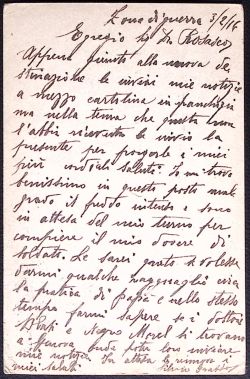 Zona di guerra 3/2/16
Egregio Sig. Dr.
Appena giunto alla nuova de
stinazione le inviai mie notizie
a mezzo cartolina in franchigia
ma nella tema che questa non
l'abbi ricevuta le invio la
presente per porgerle i miei
più cordiali saluti. Io mi trovo
benissimo in questi posti mal
grado il freddo intenso e sono
in attesa del mio turno per
compiere il mio dovere di
soldato. Le sarei grato se volesse
darmi qualche ragguaglio circa
la pratica di e nello stesso
tempo farmi sapere se i dottori
e Negro si trovano
a Genova onde poter loro inviare
mie notizie. In attesa la
miei saluti